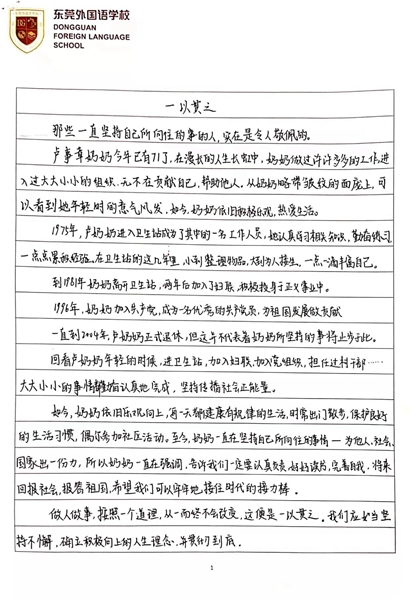 东莞外国语学校
DONGGUAN
FOREIGN LANGUAGE
SCHOOL
一以贯之
那些一直坚持自己所向往的事的人,实在是令人敬佩的。
卢事章奶奶今年已有71了,在漫长的人生长河中,奶奶做过许许多多的工作,进
入过大大小小的组织,无不在贡献自己,帮助他人。从奶奶略带皱纹的面庞上,可
以看到她年轻时的意气风发,如今,奶奶依旧积极乐观,热爱生活。
1975年,卢奶奶进入卫生站成为了其中的一名工作人员,她认真学习相关知识,勤奋练习
一点点累积经验,在卫生站的这几年里,小到整理物品,大到为人接生,一点一滴丰富自己。
到1981年奶奶离开卫生站,两年后加入了妇联,积极投身于正义事业中。
1996年,奶奶加入共产党,成为一名优秀的共产党员,为祖国发展做贡献
一直到2004年,卢奶奶正式退休,但这并不代表着奶奶所坚持的事将止步于此。
回看卢奶奶年轻的时候,进卫生站,加入妇联,加入党组织,担任过村干部……
大大小小的事情都有认真地完成,坚持传播社会正能量。
如今,奶奶依旧乐观向上,每一天都健康有规律的生活,时常出门散步,保护良好
的生活习惯,偶尔参加社区活动。至今,奶奶一直在坚持自己所向往的事情—为他人,社会,
国家出一份力,所以奶奶一直在强调,告诉我们一定要认真负责,好好读书,完善自我,将来
回报社会,报答祖国,希望我们可以牢牢地接住时代的接力棒。
做人做事,按照一个道理,从一而终不会改变,这便是一以贯之。我们应当坚
持不懈,确立积极向上的人生理念,并贯彻到底。
1